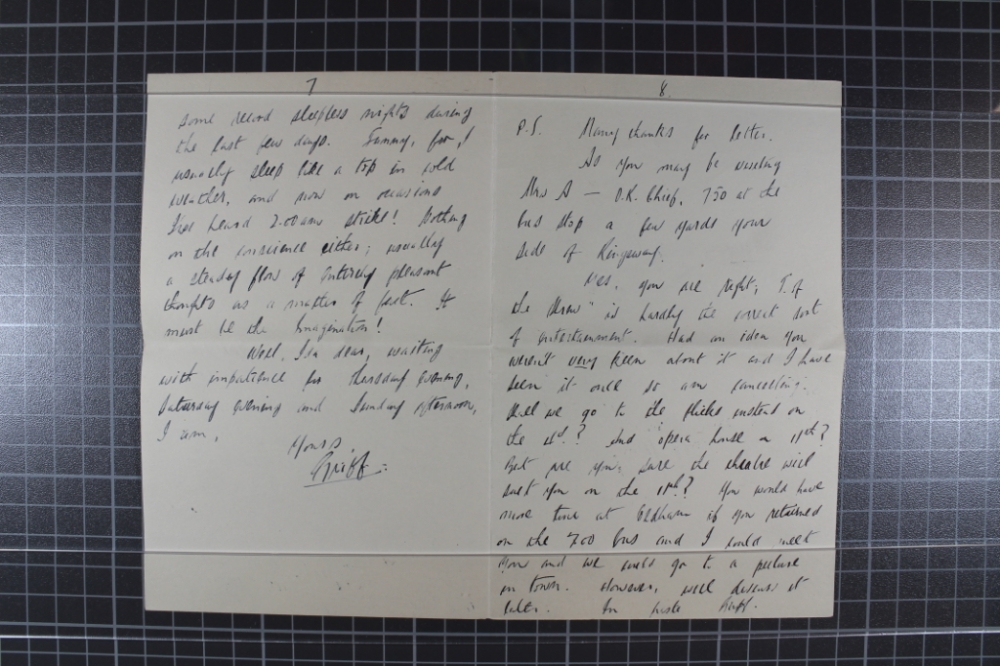 7
some record sleepless nights during
the last few days. Funny, for I
usually sleep like a top in cold
weather, and now on occasions
I've heard 2.00am strike! Nothing
on the conscience either; usually
a steady flow of entirely pleasant
thoughts as a matter of fact. It
must be the imagination!
Well, dear, waiting
with impatience for Thursday evening,
Saturday evening and Sunday afternoon,
I am,
Yours,
Griff.
8.
P.S. Many thanks for letter.
As you may be visiting
Mrs S — O.K. Chief, 7.50 at the
bus stop a few yards your
side of Kingsway.
Yes, you are right; T. of
the Shrew" is hardly the correct sort
of entertainment. Had an idea you
weren't very keen about it and I have
seen it once so am cancelling.
Shall we go to the flicks instead on
the ? And opera house on 11th?
But are you sure the theatre will
suit you on the 11th? You would have
more time at Oldham if you returned
on the 7.00 bus and I could meet
you and we could go to a picture
in town. However, will discuss it
later. In haste Griff.